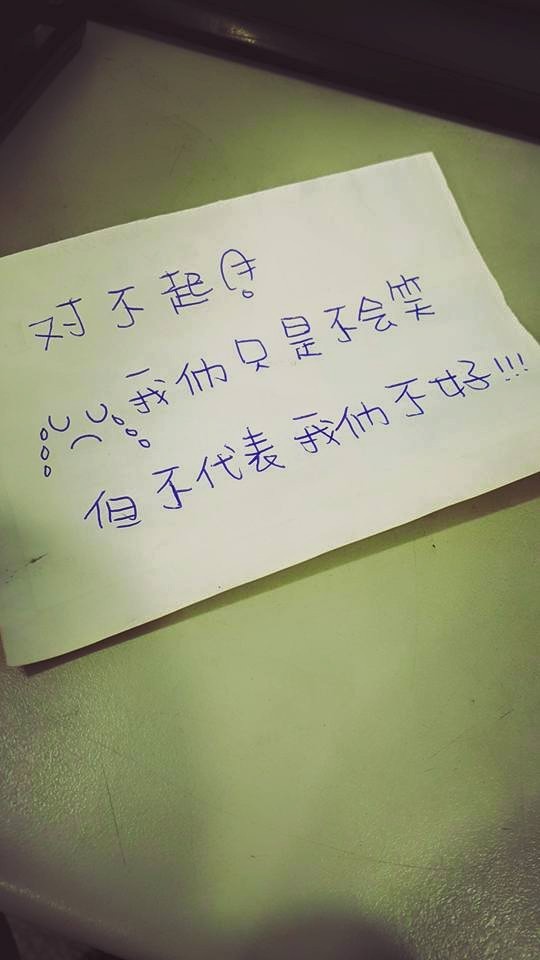 对不起!
我们只是不会笑
但不代表我们不好!!!